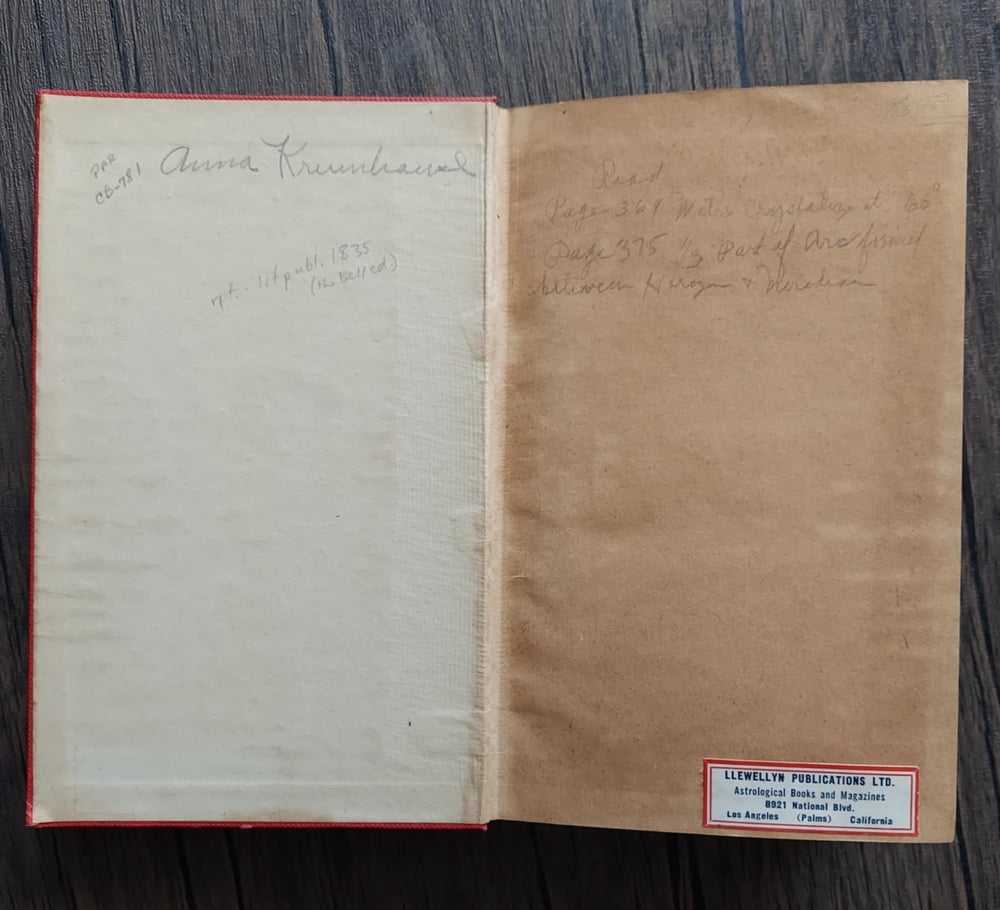 PAR
CB-781
Anna
rpt. . 1st publ. 1835
(the Bell ed.)
Read
Page 369 at 60°
Page 375 1/3 Part of Arc formed
between Horizon + Meridian
LLEWELLYN PUBLICATIONS LTD.
Astrological Books and Magazines
8921 National Blvd.
Los Angeles (Palms) California